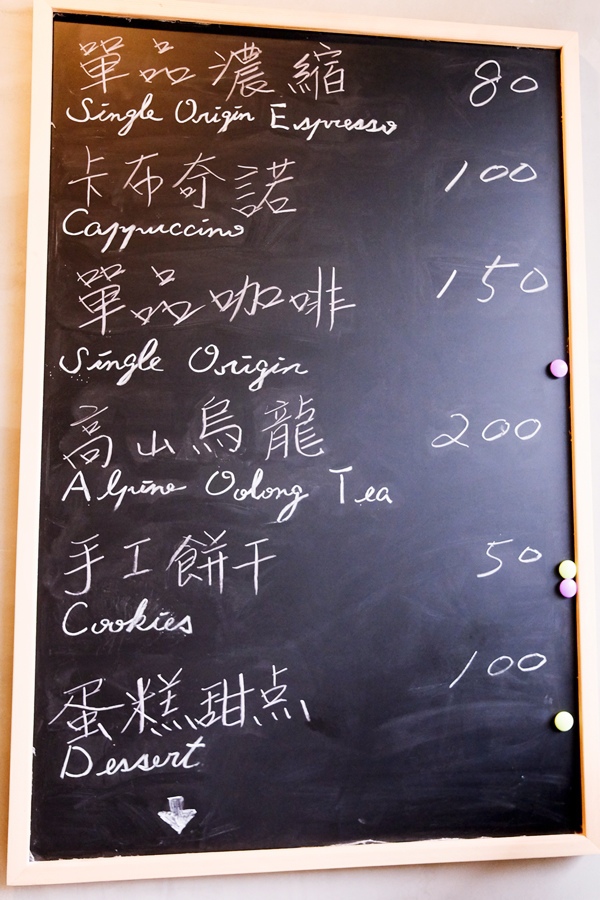 單品濃縮 80
Single Origin Espresso
卡布奇諾 100
Cappuccino
單品咖啡 150
Single Origin
高山烏龍 200
Alpine Oolong Tea
手工餅干 50
Cookies
蛋糕甜点 100
Dessert